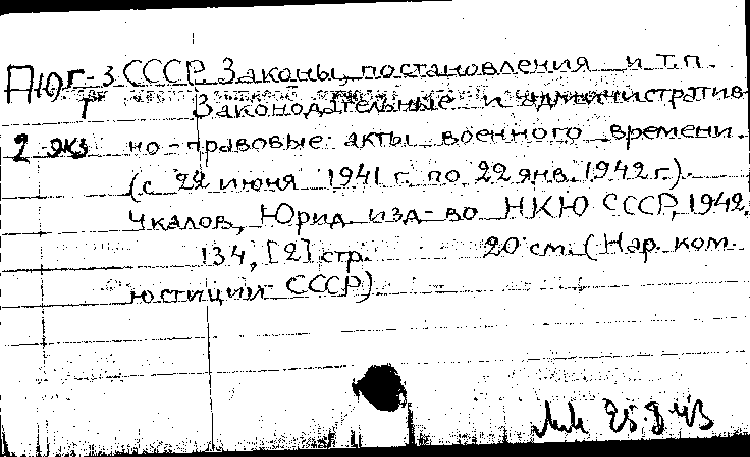 ПЮГ-3 СССР. Законы, постановления и т.п.
Т Законодательные и административ-
2 экз но-правовые акты военного времени.
(с 22 июня 1941 г. по 22 янв. 1942 г.).
Чкалов, Юрид. изд-во НКЮ СССР, 1942.
134, [2] стр. 20 см. (Нар. ком.
юстиции СССР).
25.8 43